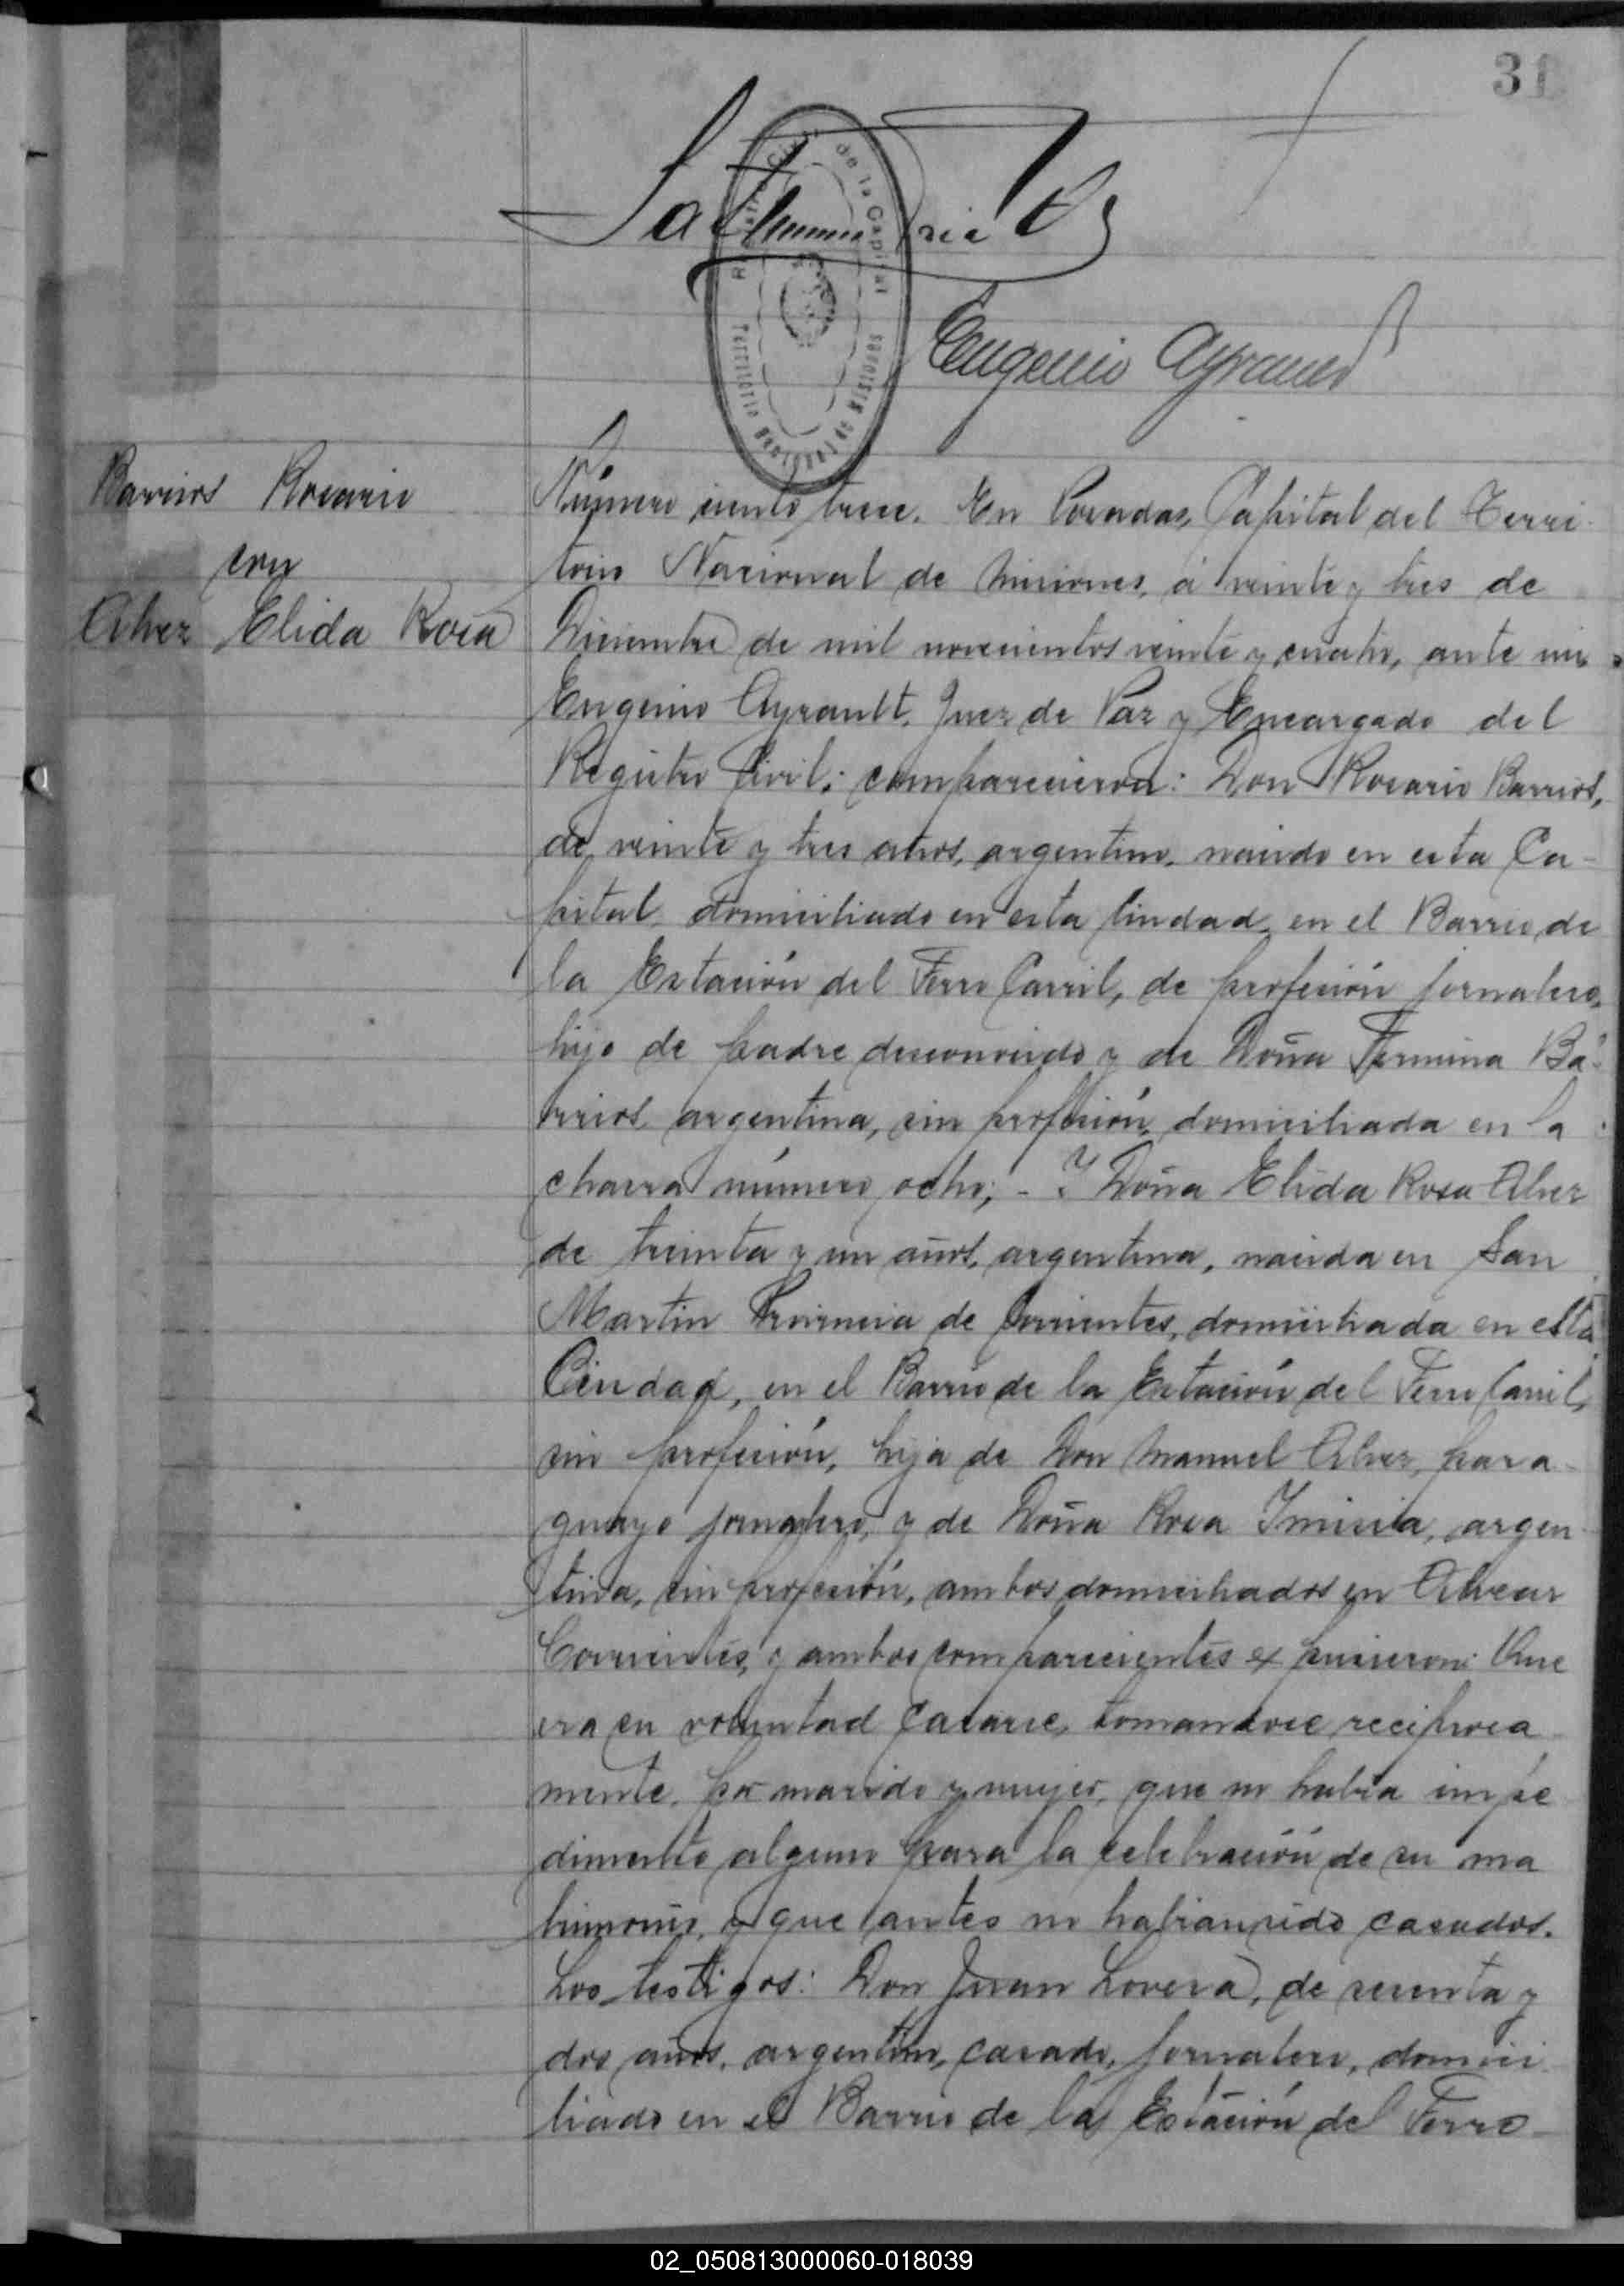 31
Registro Civil de la Capital
Territorio Nacional de Misiones
Eugenio Ayrault
Barrios Rosario
con
Alvez Elida Rosa
Número ciento trece. En Posadas, Capital del Terri-
torio Nacional de Misiones, á veinte y tres de
Diciembre de mil novecientos veinte y cuatro, ante mi
Eugenio Ayrault, Juez de Paz y Encargado del
Registro Civil; comparecieron: Don Rosario Barrios,
de veinte y tres años, argentino, nacido en esta Ca-
pital, domiciliado en esta Ciudad, en el Barrio de
la Estación del Ferro Carril, de profesión jornalero,
hijo de padre desconocido y de Doña Fermina Ba-
rrios argentina, sin profesión, domiciliada en la
chacra número ocho; - Y Doña Elida Rosa Alvez
de treinta y un años, argentina, nacida en San
Martin Provincia de Corrientes, domiciliada en esta
Ciudad, en el Barrio de la Estación del Ferro Carril,
sin profesión, hija de Don Manuel Alvez, para-
guayo jornalero, y de Doña Rosa, argen-
tina, sin profesión, ambos domiciliados en Alvear
Corrientes, y ambos comparecientes expusieron: Que
era su voluntad casarse, tomandose reciproca
mente, por marido y mujer, que no habia impe
dimento alguno para la celebración de su ma
trimonio, y que antes no habian sido casados.
Los testigos: Don Juan Lovera, de sesenta y
dos años, argentino, casado, jornalero, domici
liado en el Barrio de la Estación del Ferro-
02_050813000060-018039